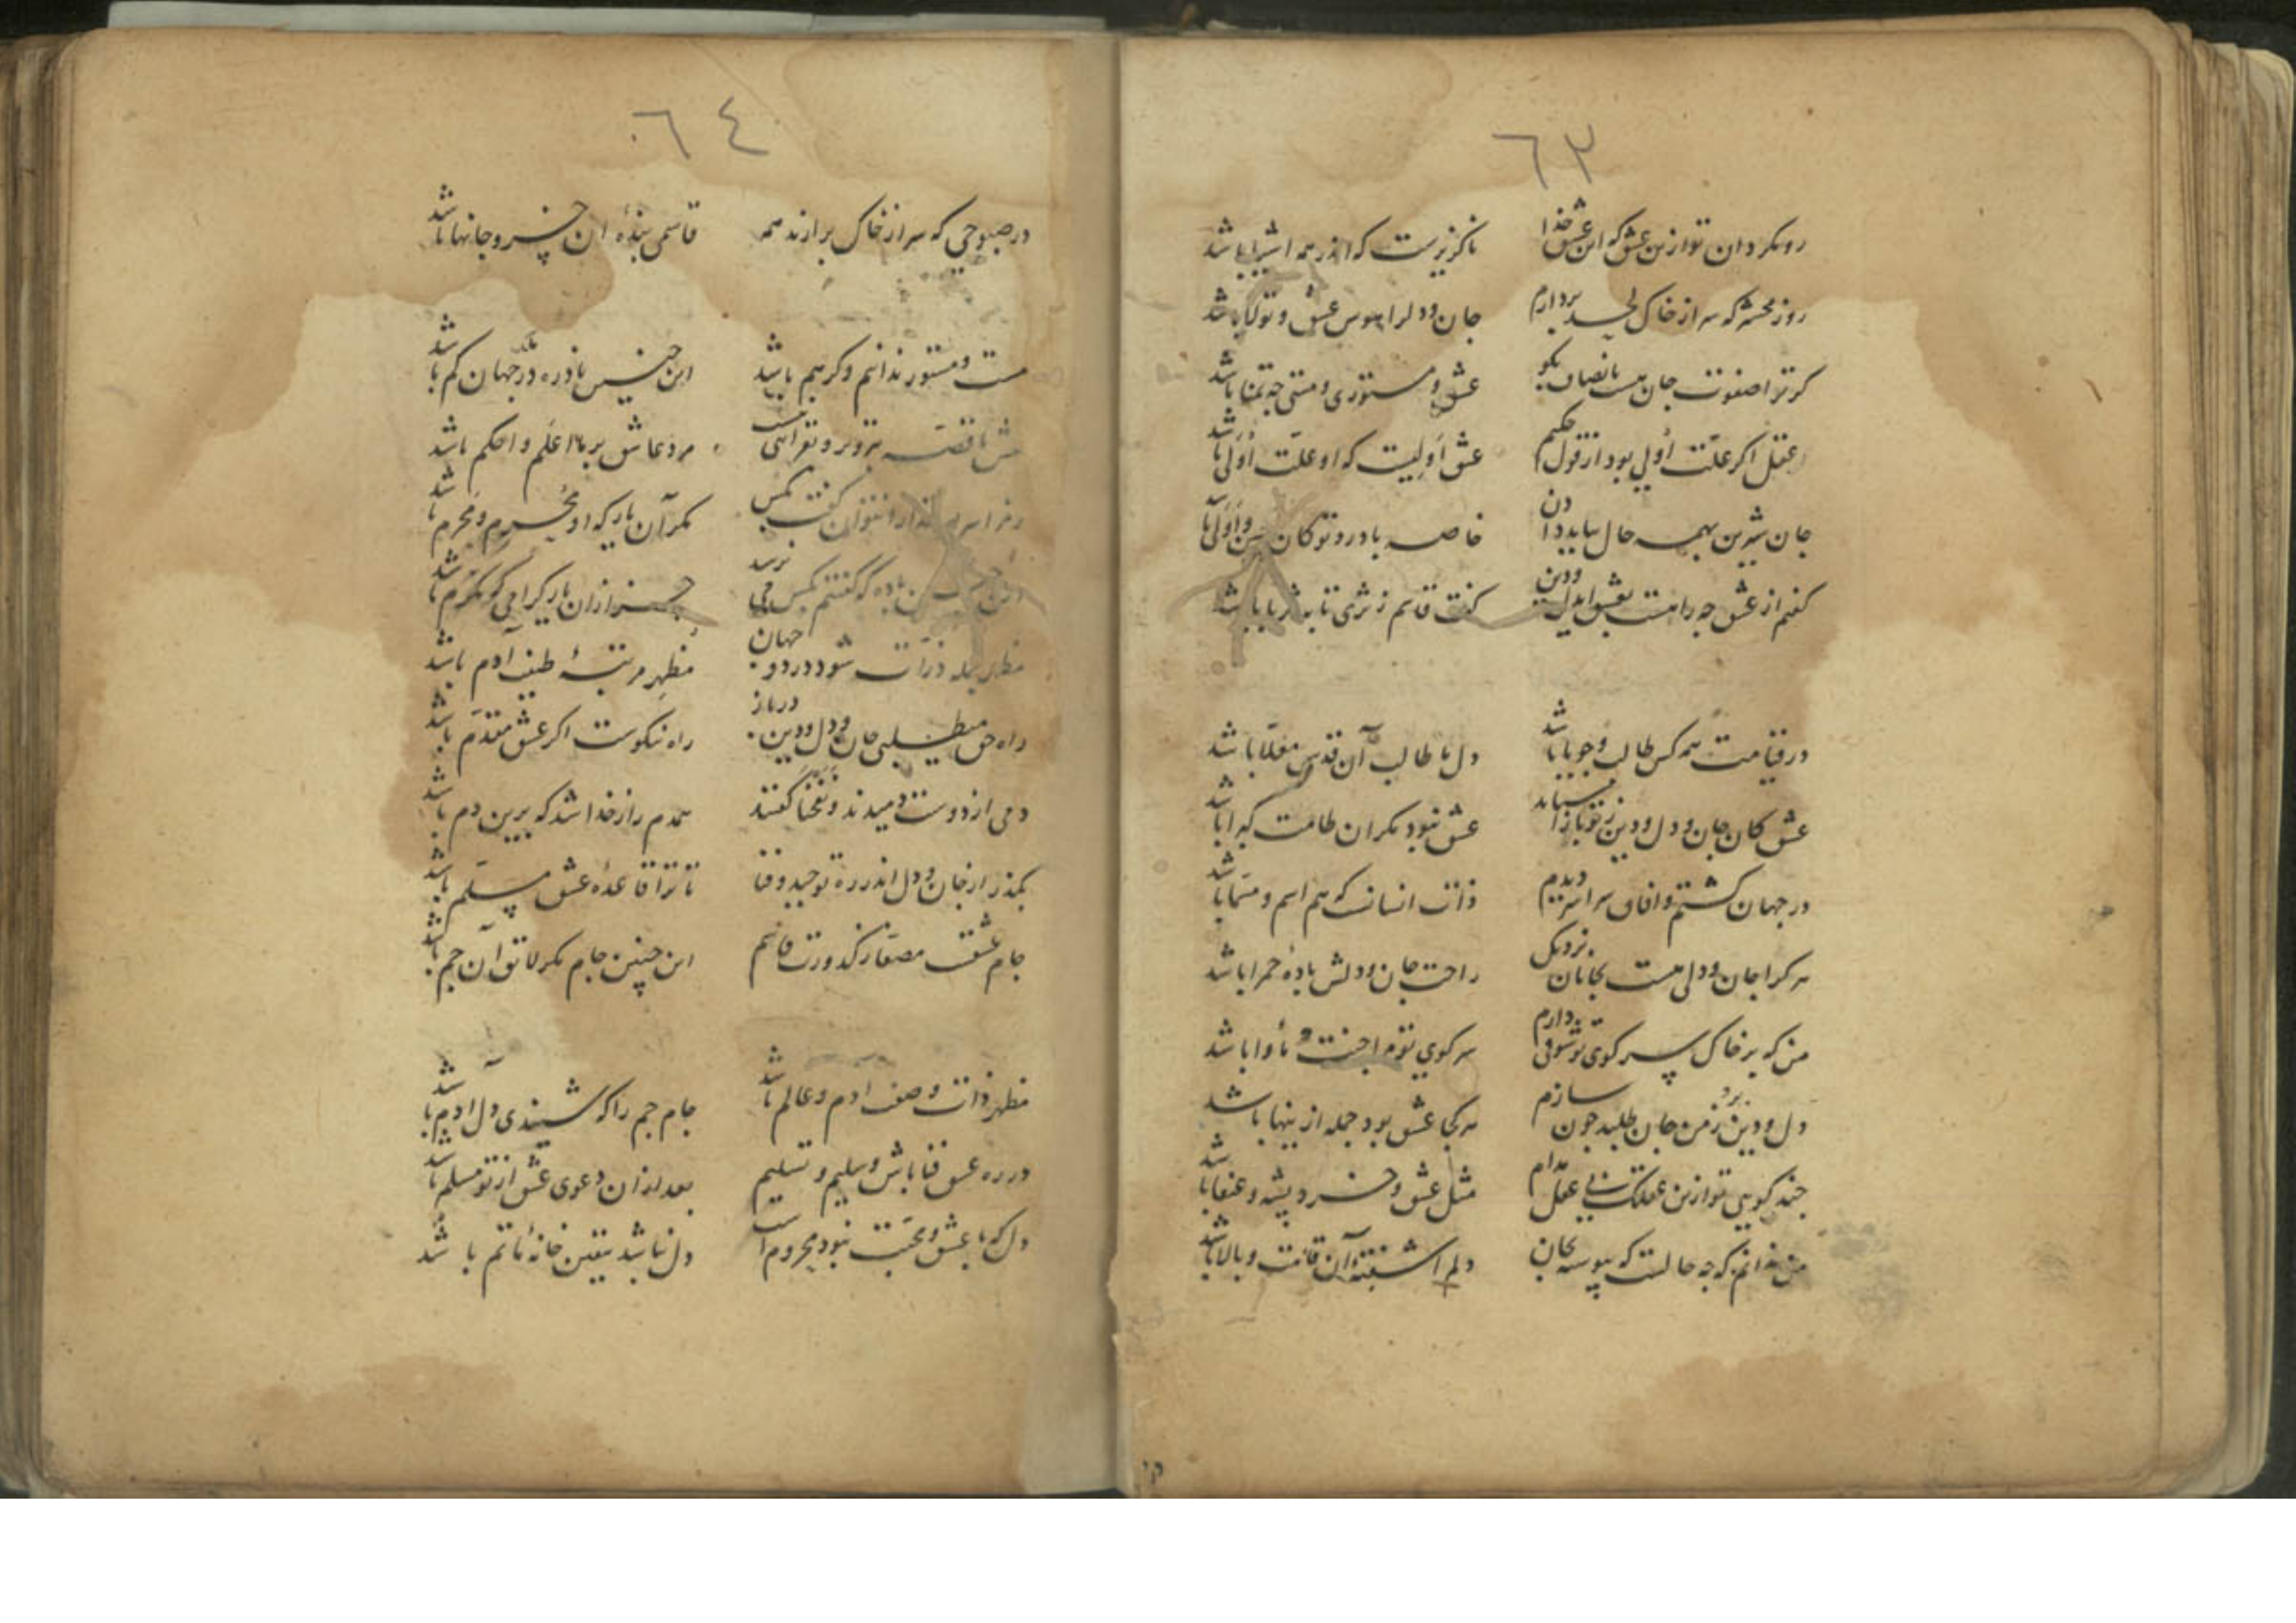 ٦٣
رومگردان تو ازین عشق که این عشق خدا ناگزیرست که اندر همه اشیا باشد
روز محشر که سر از خاک لحد بردارم جان و دلرا هوس عشق و تولا باشد
گر ترا صفوت جان هست بانصاف بگو عشق و مستوری و مستی چه تمنا باشد
عقل اگر علّت اُولی بود از قول حکیم عشق اَولیست که او علّت اُولی باشد
جان شیرین بهمه حال بباید دادن خاصه با درد تو کان
گفتم از عشق چه راهست بعشق ای دل و دین گفت قاسم ز ثری تا به ثریا باشد
در قیامت همه کس طالب و جویا باشد دل ما طالب آن قدس معلّا باشد
عشق کان جان و دل و دین ز تو باز نستاند عشق نبود مگر آن طامت کبرا باشد
در جهان گشتم و آفاق سراسر دیدم ذات انسانست که هم اسم و مسمّا باشد
هر کرا جان و دلی هست بجانان نزدیک راحت جان و دلش بادهٔ حمرا باشد
من که بر خاک سر کوی تو شوقی دارم سر کوی تو مرا جنت مأوا باشد
دل و دین برد ز من جان طلبد چون سازم هر کجا عشق بود جمله ازینها باشد
چند گویی تو ازین عقلک بی عقل مدام مثل عشق و خرد پشه و عنقا باشد
من ندانم که چه حالست که پیوسته بجان دلم آشفته آن قامت و بالا باشد
٦٤
در صبوحی که سر از خاک برارند همه قاسمی بندهٔ آن خسرو جانها باشد
مست و مستور ندانم و گر هم باشد این چنین نادره در جهان کم باشد
قصه تزویر و مرد عاشق بر ما اعلم و احکم باشد
نتوان گفت بکس مگر آن یار که او محرم و محرم باشد
باده که گفتم بکس می نرسد جز از ان یار گرامی که مکرّم باشد
مظهر جمله ذرّات شود در دو جهان مظهر مرتبهٔ طینت آدم باشد
راه حق میطلبی جان و دل و دین درباز راه نیکوست اگر عشق مقدّم باشد
دمی از دوست دمیدند و نفخنا گفتند همدم راز خدا شد که برین دم باشد
بگذر از جان و دل اندر ره توحید و فنا تا ترا قاعدهٔ عشق مسلّم باشد
جام عشقت مصفا ز کدورت قاسم این چنین جام مگر لایق آن جم باشد
مظهر ذات و صفت آدم و عالم باشد جام جم را که شنیدی دل آدم باشد
در ره عشق فنا باش و سلیم و تسلیم بعد از ان دعوی عشق از تو مسلم باشد
دل که با عشق و محبت نبود محروم است دل نباشد بیقین خانهٔ ماتم باشد